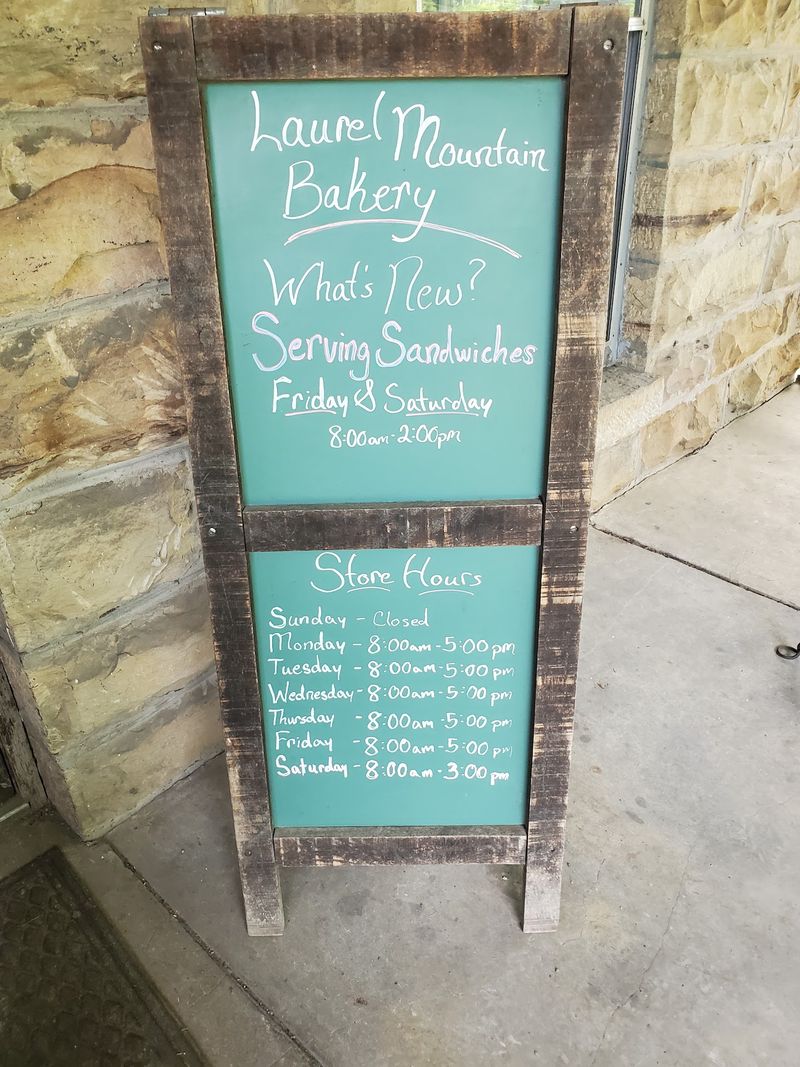 Laurel Mountain
Bakery
What's New?
Serving Sandwiches
Friday & Saturday
8:00am-2:00pm
Store Hours
Sunday - Closed
Monday - 8:00am - 5:00 pm
Tuesday - 8:00am - 5:00 pm
Wednesday - 8:00am - 5:00 pm
Thursday - 8:00am - 5:00 pm
Friday - 8:00am - 5:00 pm
Saturday - 8:00am - 3:00 pm